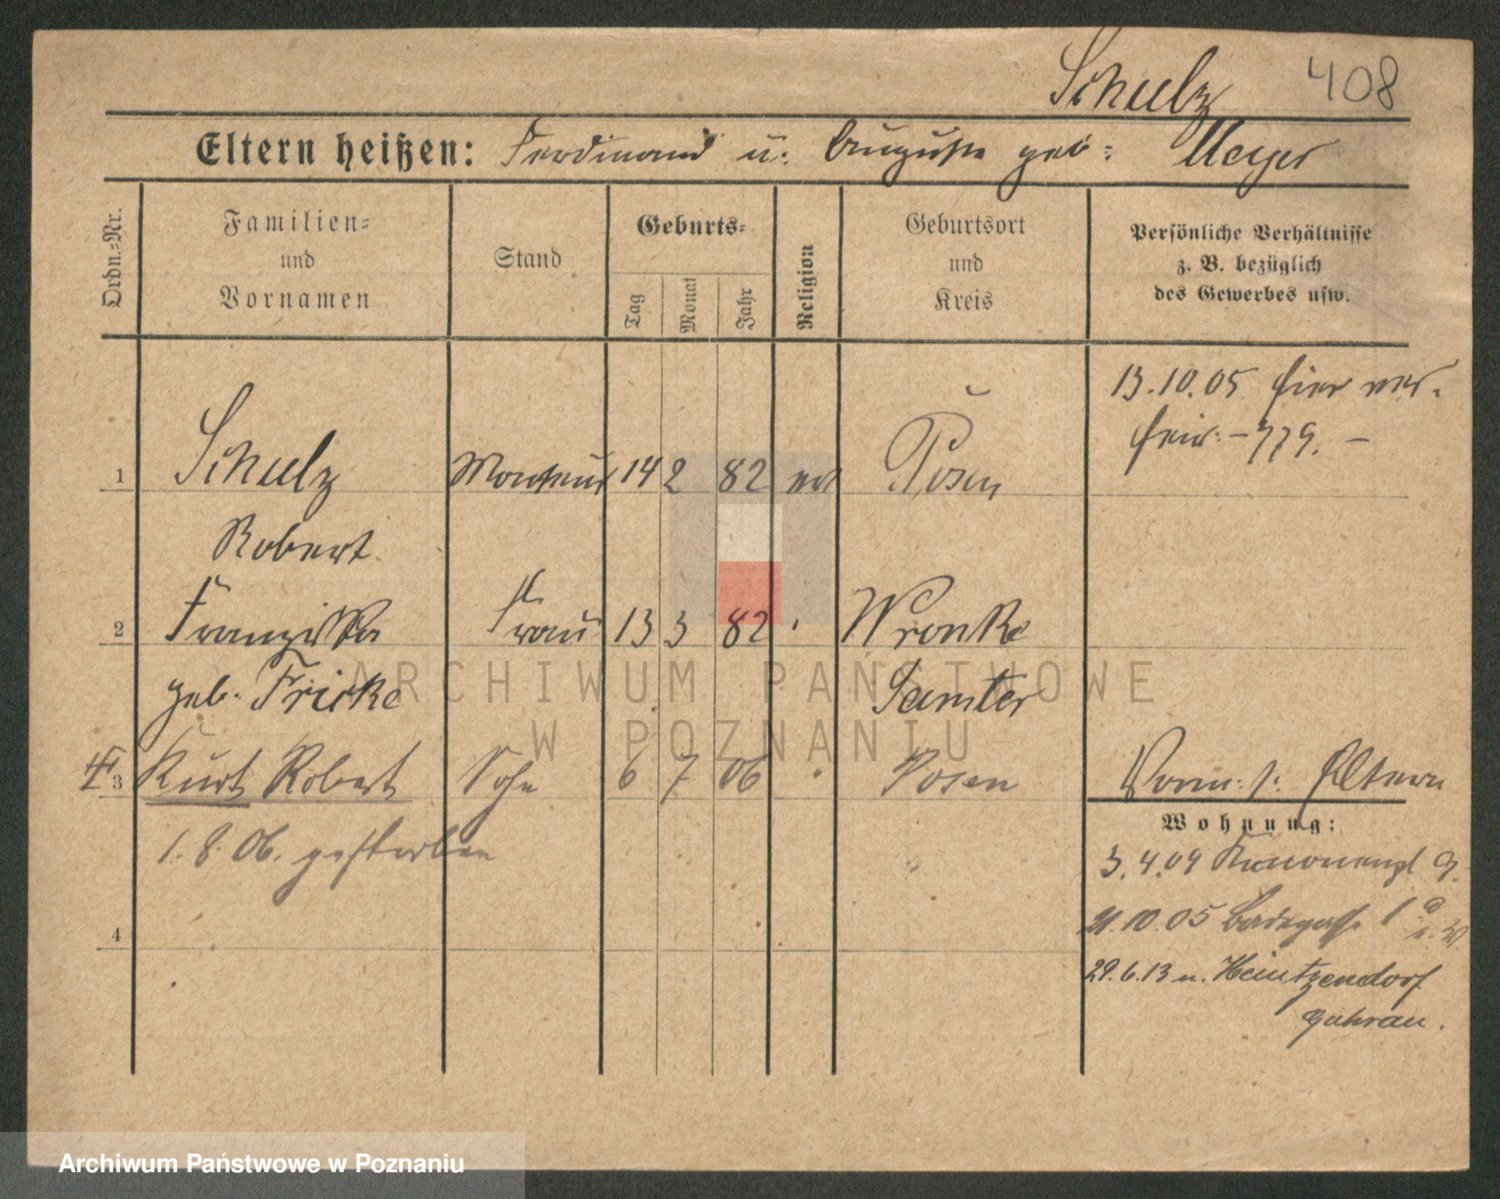 Schulz 408
Eltern heißen: Ferdinand u. Auguste geb: Meyer
Ordn.-Nr.
Familien-
und
Vornamen
Stand
Geburts-
Tag
Monat
Jahr
Religion
Geburtsort
und
Kreis
Persönliche Verhältnisse
z. B. bezüglich
des Gewerbes usw.
13.10.05 hier ver-
heir. - 779. -
1 Schulz Monteur 14 2 82 ev Posen
Robert
2 Franziska Frau 13 3 82 Wronke
geb. Fricke Samter
3 Kurt Robert Sohn 6 7 06 Posen
1.8.06. gestorben
Vorm. s. Eltern
Wohnung:
3.4.09
10.05
29.6.13 n. Heintzendorf
Guhrau.
4
ARCHIWUM PAŃSTWOWE
W POZNANIU
Archiwum Państwowe w Poznaniu